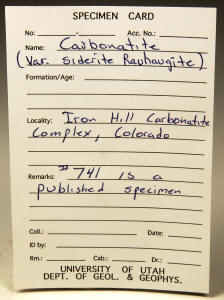 SPECIMEN CARD
No: - Acc. No.:
Name: Carbonatite
(Var. Siderite Rauhaugite)
Formation/Age:
Locality: Iron Hill Carbonatite
Complex, Colorado
Remarks: #741 is a
published specimen
Coll.: Date:
ID by:
Rm.: Cab.: Dr.:
UNIVERSITY OF UTAH
DEPT. OF GEOL. & GEOPHYS.